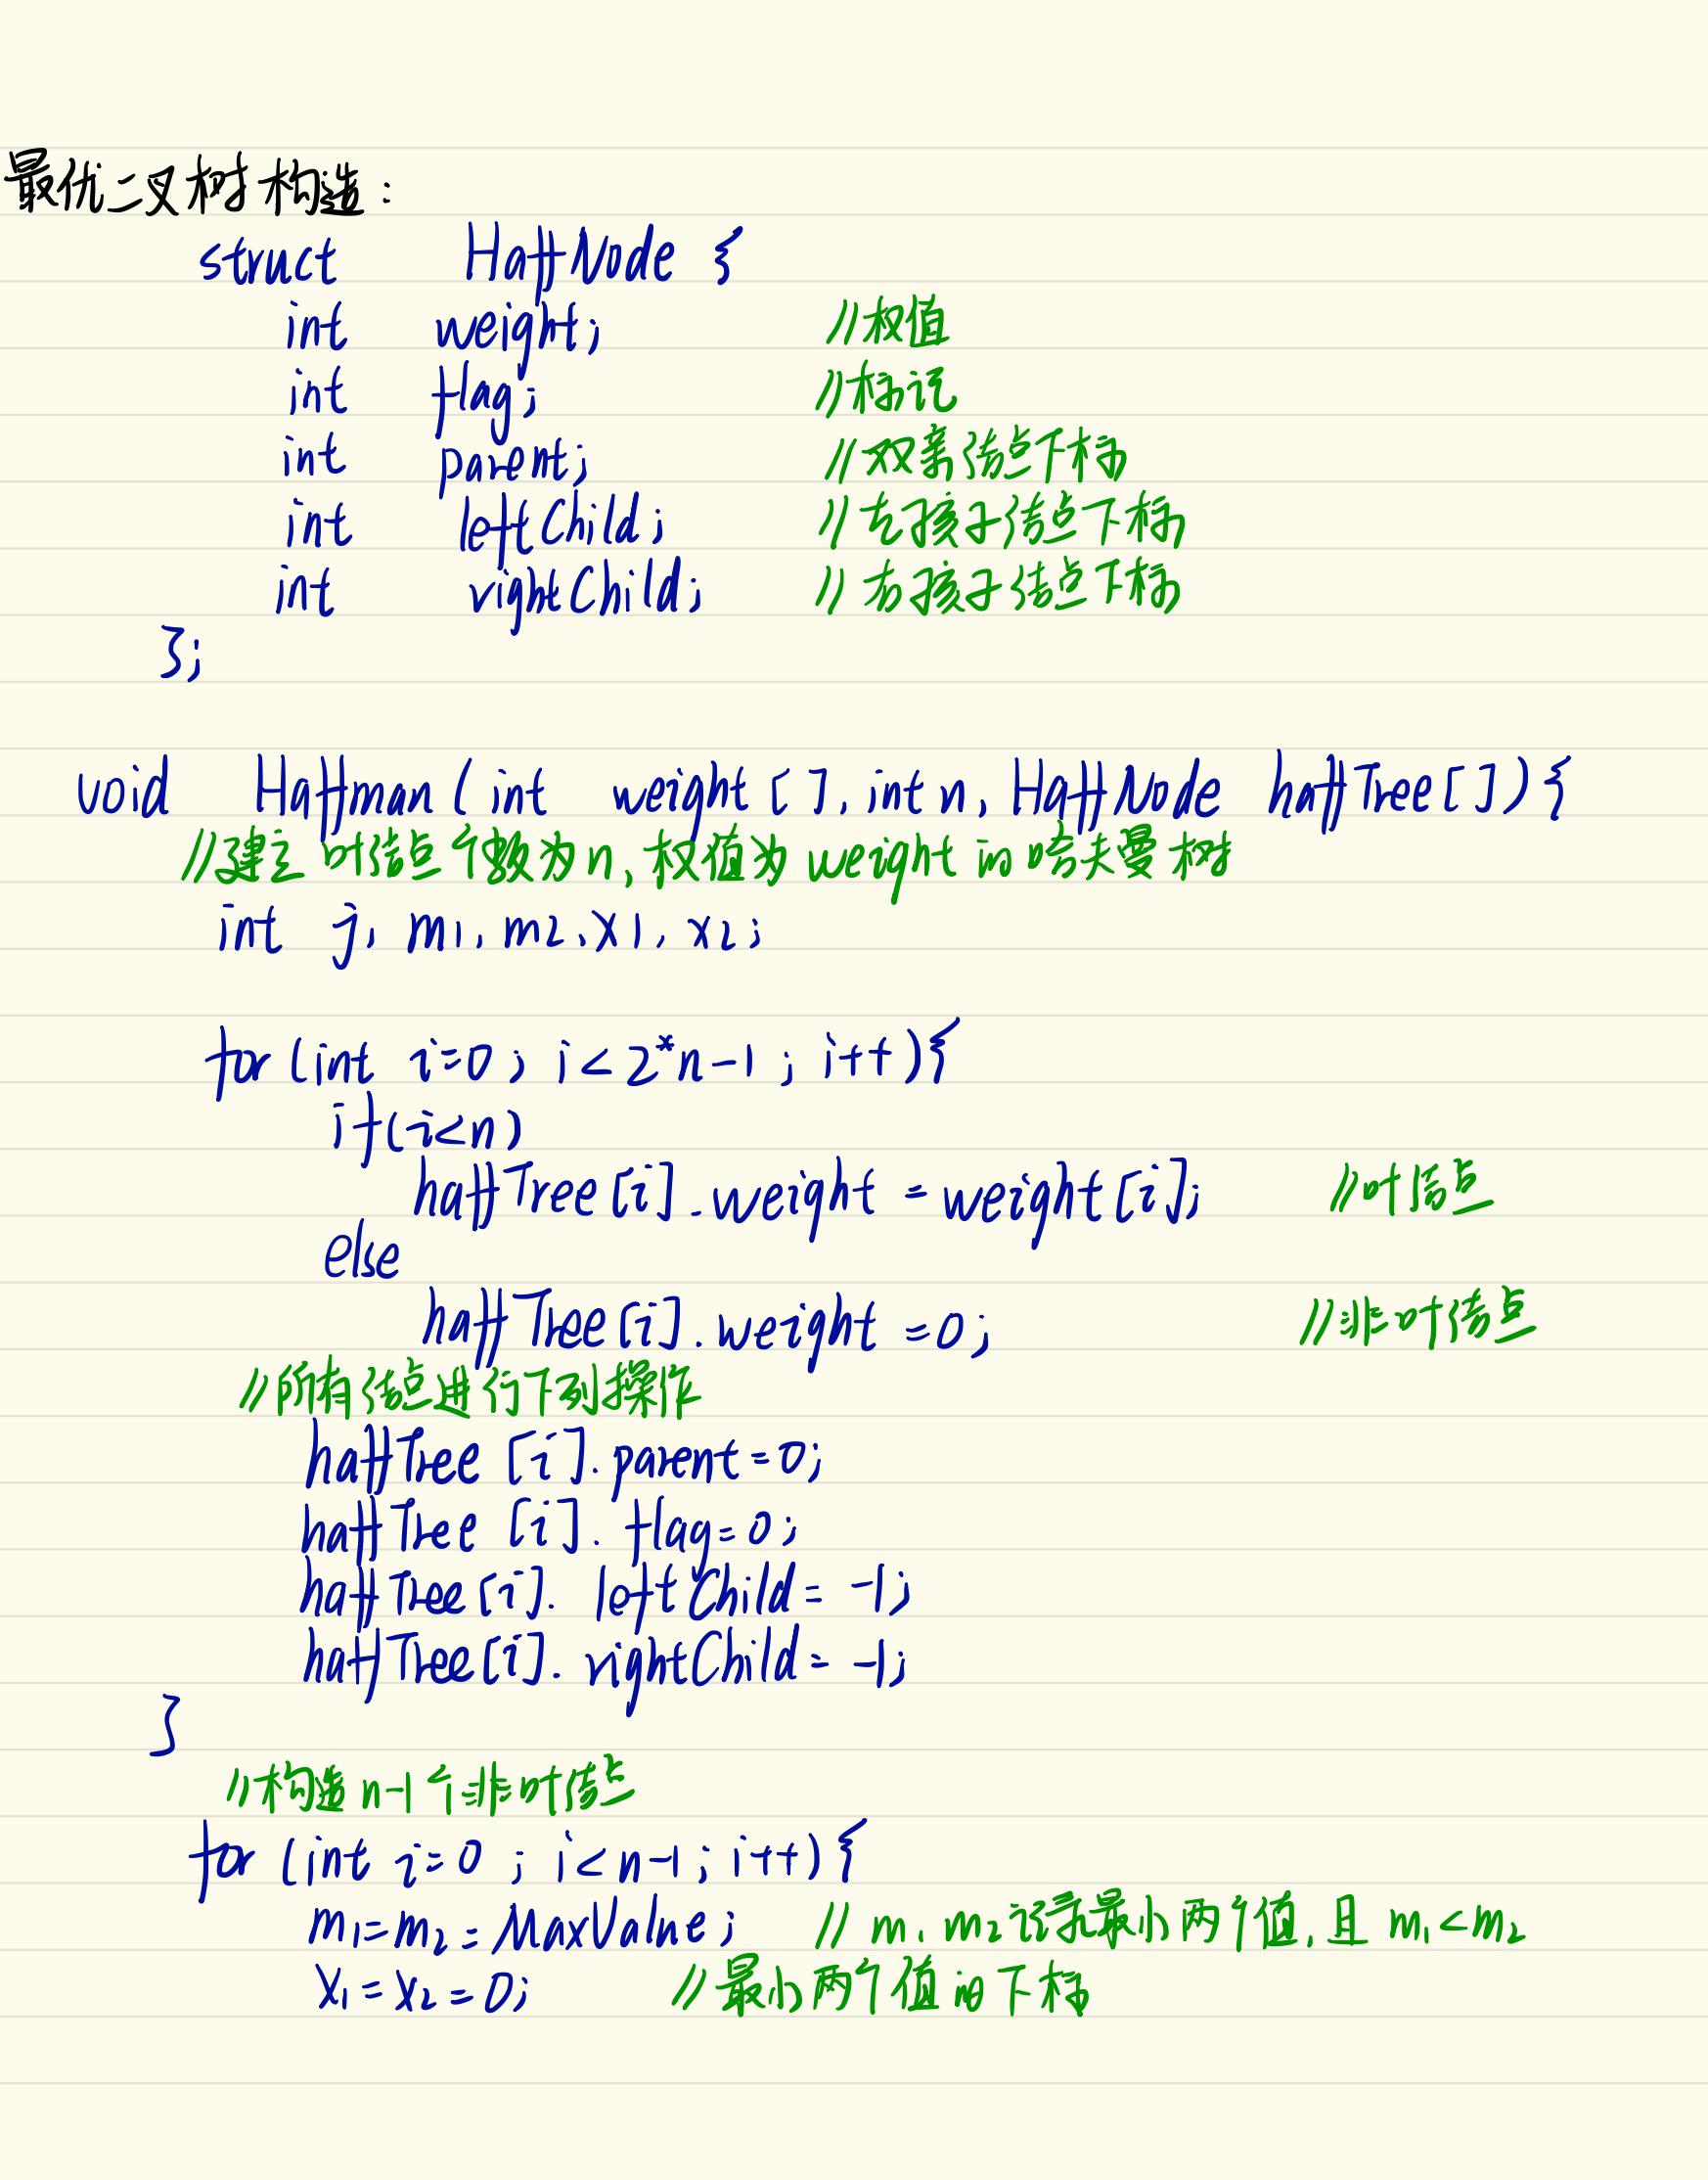 最优二叉树构造:
struct HaffNode {
int weight; //权值
int flag; //标记
int parent; //双亲结点下标
int leftChild; //左孩子结点下标
int rightChild; //右孩子结点下标
};
void Haffman(int weight[], int n, HaffNode haffTree[]){
//建立叶结点个数为n,权值为weight的哈夫曼树
int j, m1, m2, x1, x2;
for(int i=0; i<2*n-1; i++){
if(i<n)
haffTree[i].weight = weight[i]; //叶结点
else
haffTree[i].weight = 0; //非叶结点
//所有结点进行下列操作
haffTree[i].parent=0;
haffTree[i].flag=0;
haffTree[i].leftChild= -1;
haffTree[i].rightChild= -1;
}
//构造n-1个非叶结点
for(int i=0; i<n-1; i++){
m1=m2=MaxValue; //m1,m2记录最小两个值,且m1<m2
x1=x2=0; //最小两个值的下标